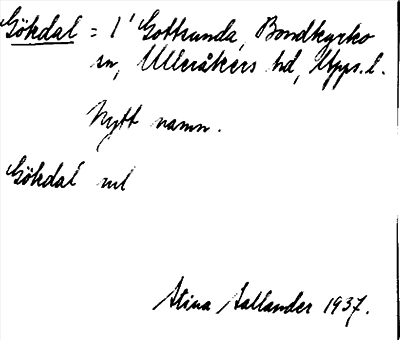 Gökdal = 1' Gottsunda, Bondkyrko
sn, Ulleråkers hd, Upps. l.
Nytt namn.
Gökdal
Stina Sallander 1937.